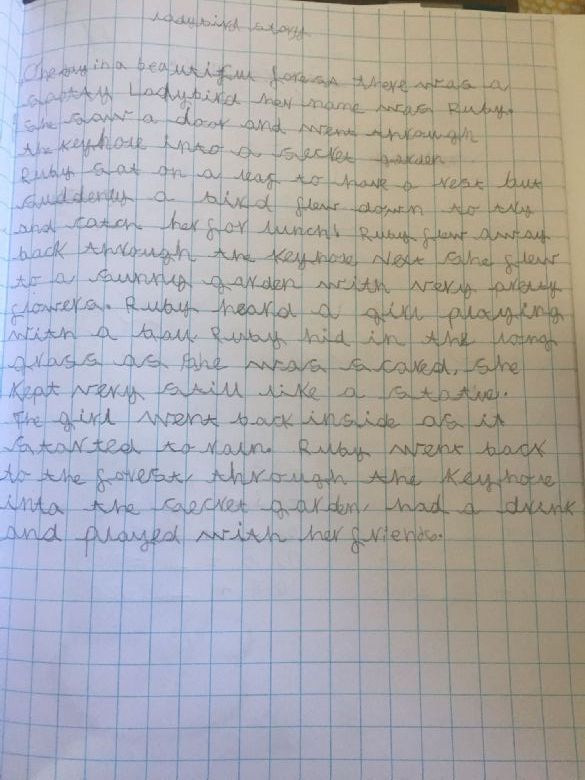 ladybird story
One day in a beautiful forest there was a
spotty Ladybird her name was Ruby.
She saw a door and went through
the keyhole into a secret garden
Ruby sat on a leaf to have a rest but
suddenly a bird flew down to try
and catch her for lunch! Ruby flew away
back through the keyhole next she flew
to a sunny garden with very pretty
flowers. Ruby heard a girl playing
with a ball Ruby hid in the long
grass as she was scared, She
kept very still like a statue.
The girl went back inside as it
started to rain. Ruby went back
to the forest, through the keyhole
into the secret garden, had a drink
and played with her friends.